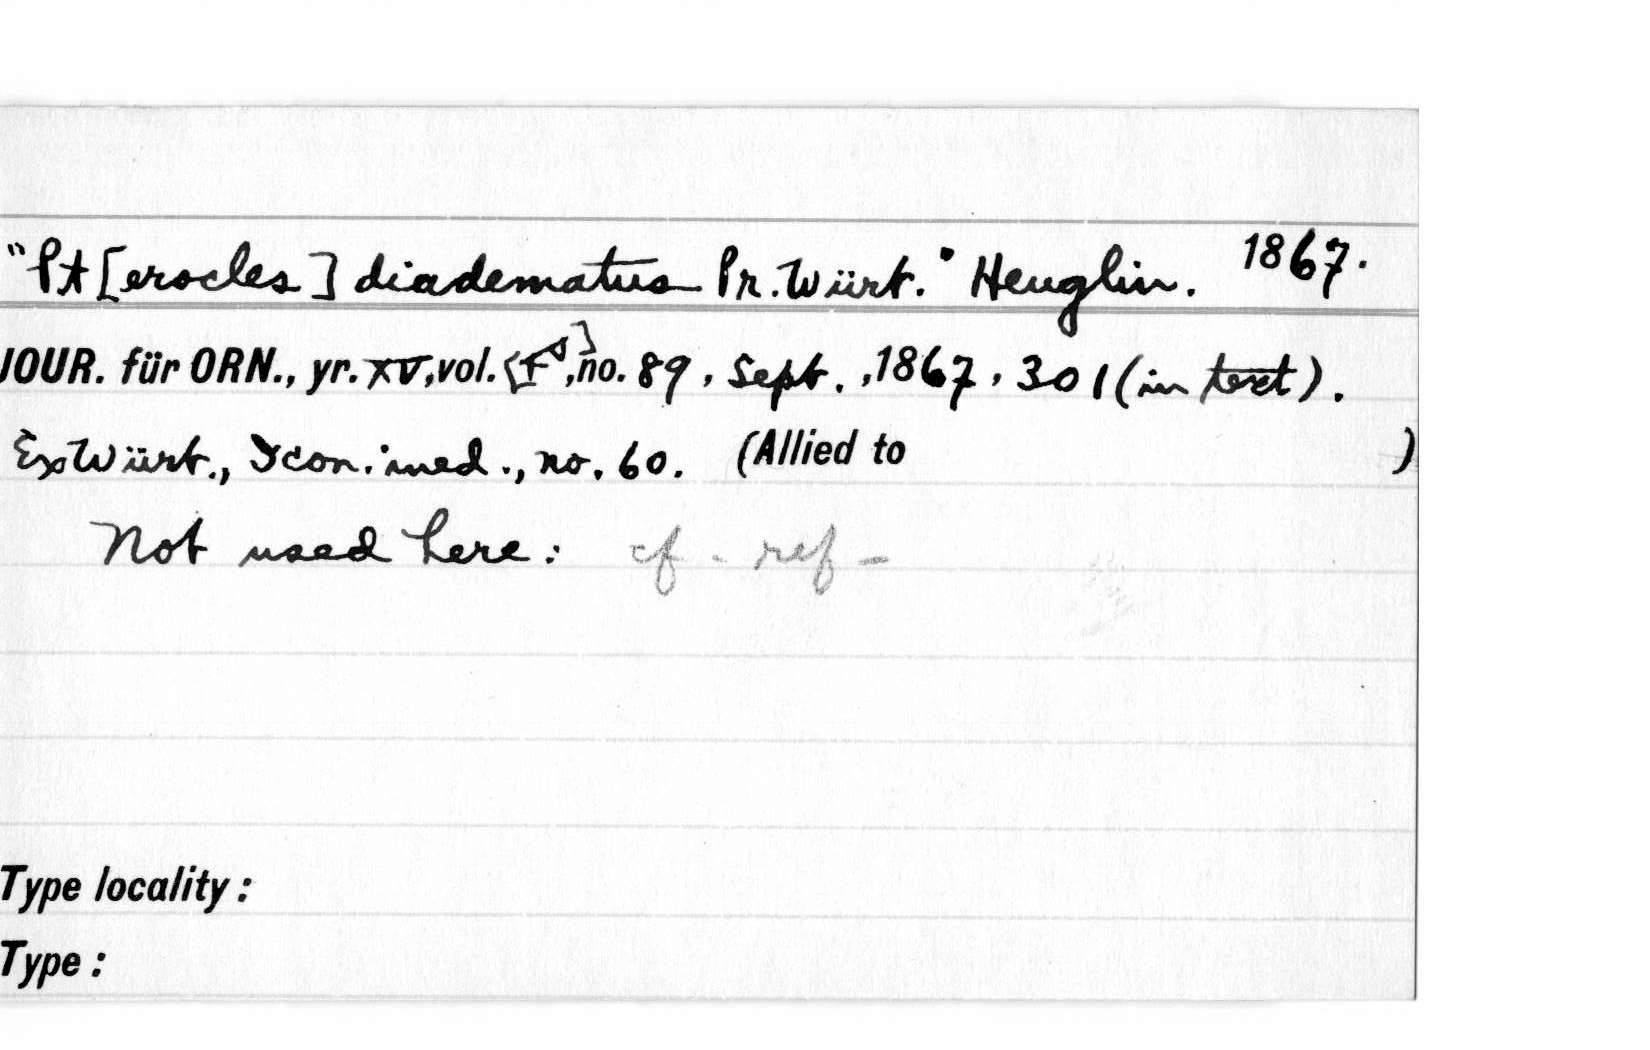 "Pt[erocles] diadematus Pr. Würt." Heuglin. 1867.
JOUR. für ORN., yr. XV, vol. , no. 89, Sept., 1867, 301 (in text).
Ex Würt., Icon. ined., no. 60. (Allied to )
Not used here: cf. ref -
Type locality:
Type: